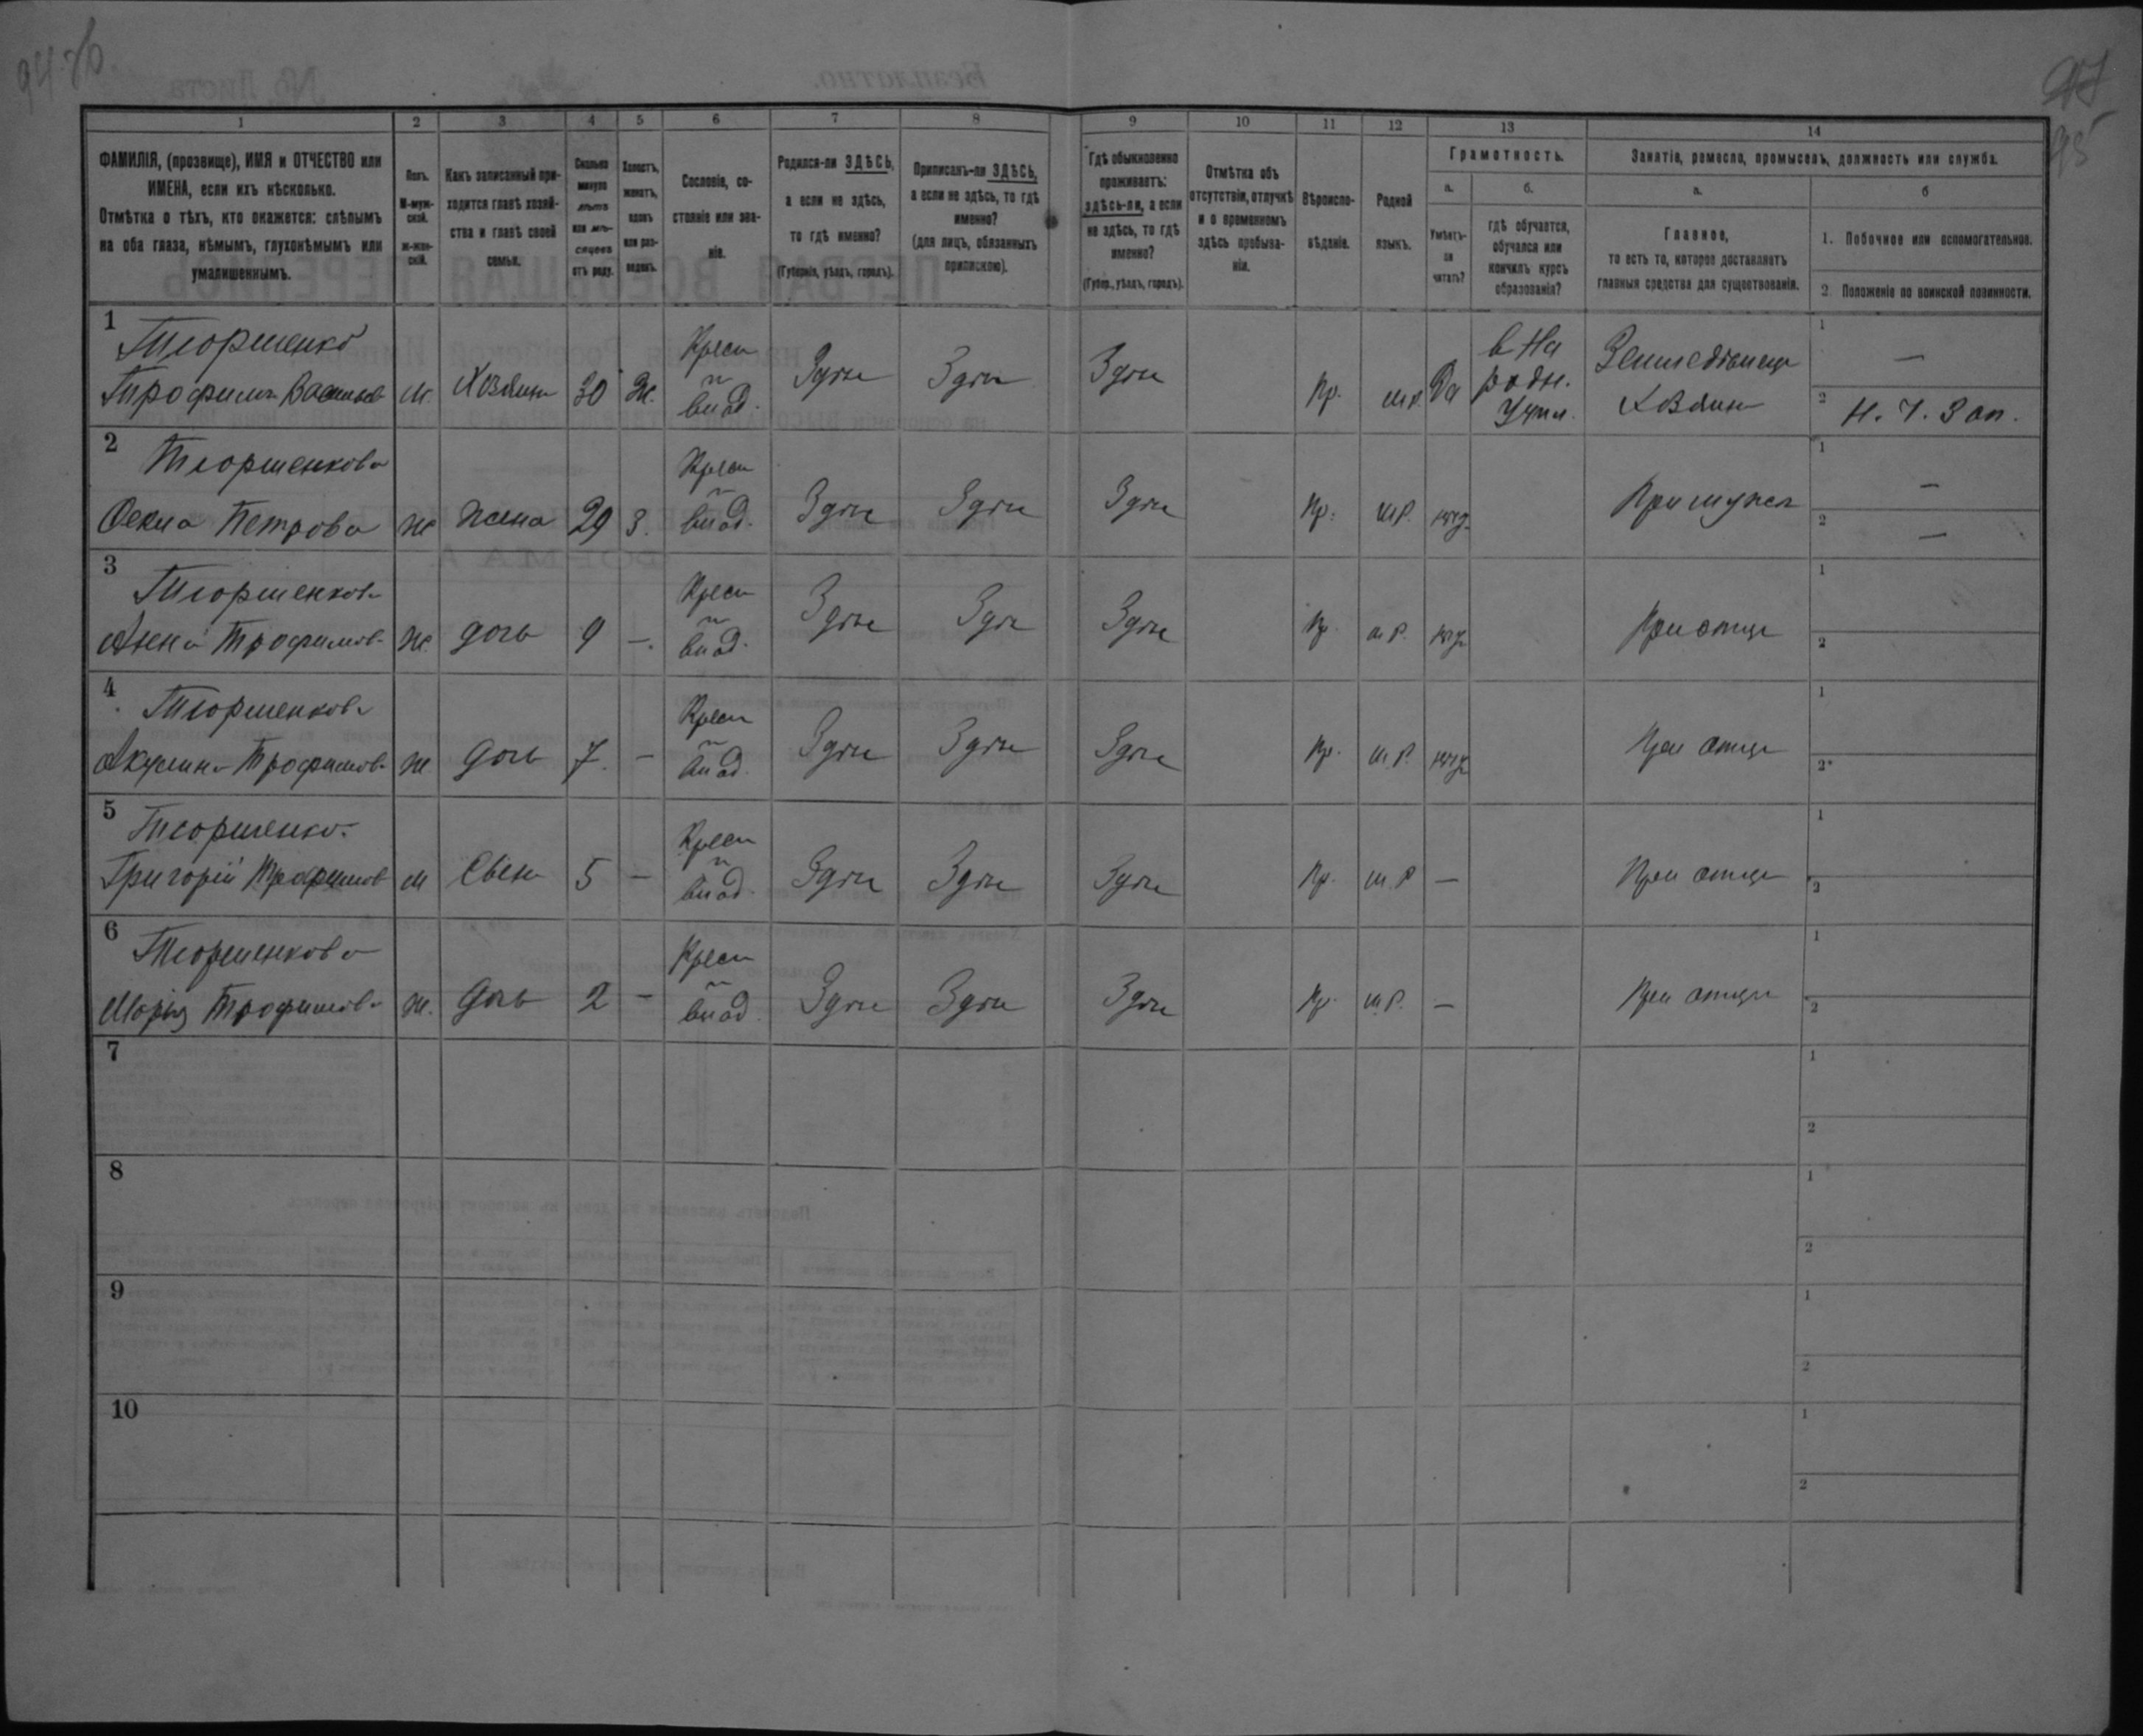 94 об
97
95
1 2 3 4 5 6 7 8 9 10 11 12 13 14
ФАМИЛІЯ, (прозвище), ИМЯ и ОТЧЕСТВО или
ИМЕНА, если ихъ нѣсколько.
Отмѣтка о тѣхъ, кто окажется: слѣпымъ
на оба глаза, нѣмымъ, глухонѣмымъ или
умалишеннымъ.
Полъ.
М-муж-
ской.
ж-жен-
скій.
Какъ записанный при-
ходится главѣ хозяй-
ства и главѣ своей
семьи.
Сколько
минуло
лѣтъ
или мѣ-
сяцевъ
отъ роду.
Холостъ,
женатъ,
вдовъ
или раз-
веденъ.
Сословіе, со-
стояніе или зва-
ніе.
Родился-ли ЗДѢСЬ,
а если не здѣсь,
то гдѣ именно?
(Губернія, уѣздъ, городъ).
Приписанъ-ли ЗДѢСЬ,
а если не здѣсь, то гдѣ
именно?
(для лицъ, обязанныхъ
припискою).
Гдѣ обыкновенно
проживаетъ:
здѣсь-ли, а если
не здѣсь, то гдѣ
именно?
(Губер., уѣздъ, городъ).
Отмѣтка объ
отсутствіи, отлучкѣ
и о временномъ
здѣсь пребыва-
ніи.
Вѣроиспо-
вѣданіе.
Родной
языкъ.
Грамотность.
а.
Умѣетъ-
ли
читать?
б.
гдѣ обучается,
обучался или
кончилъ курсъ
образованія?
Занятіе, ремесло, промыселъ, должность или служба.
а.
Главное,
то есть то, которое доставляетъ
главныя средства для существованія.
б
1. Побочное или вспомогательное.
2 Положеніе по воинской повинности.
1
Тюрменко
Трофимъ Васильев
м. Хозяинъ 30 Ж. Крест Здѣсь Здѣсь Здѣсь Пр. м.р. Да
в На
родн.
Учил.
Хозяинъ
1 —
2 Н. Ч. Зап.
2
Тюрменкова
Петрова
ж жена 29 З. Крест Здѣсь Здѣсь Здѣсь Пр. м.р. При мужѣ
1 —
2 —
3
Тюрменкова
Анна Трофимов
ж. дочь 9 —. Крест Здѣсь Здѣсь Здѣсь Пр. м.р. При отцѣ
1
2
4
Тюрменкова
Акулина Трофимов
ж дочь 7. — Крест Здѣсь Здѣсь Здѣсь Пр. м.р. При отцѣ
1
2
5
Тюрменко
Григорій Трофимов
м Сынъ 5 — Крест Здѣсь Здѣсь Здѣсь Пр. м.р — При отцѣ
1
2
6
Тюрменкова
Марія Трофимова
ж. дочь 2 — Крест Здѣсь Здѣсь Здѣсь Пр. м.р. — При отцѣ
1
2
7
1
2
8
1
2
9
1
2
10
1
2